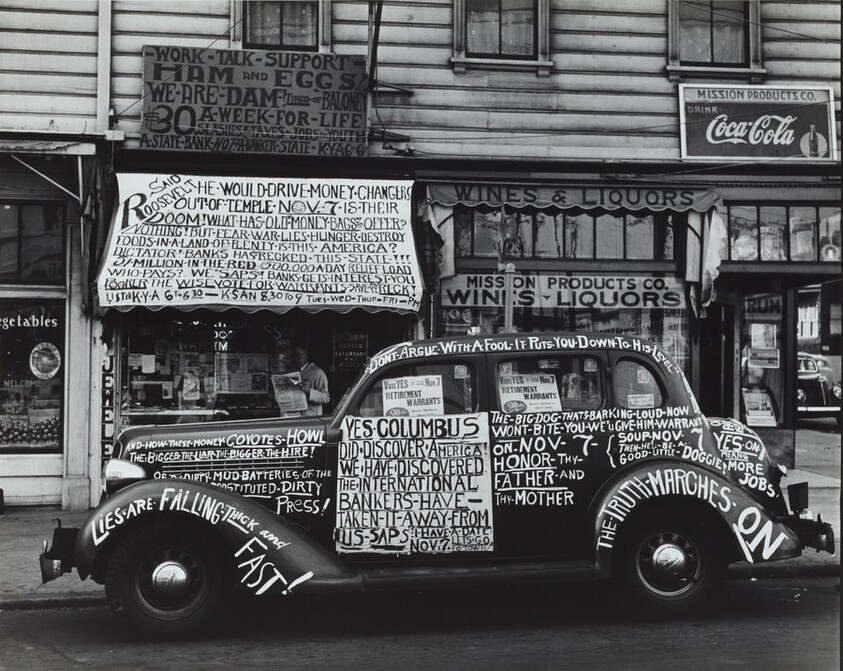 WORK-TALK-SUPPORT
HAM AND EGGS
WE-ARE-DAM-TIRED-OF BALONEY
$30 A-WEEK-FOR-LIFE
A-STATE-BANK-NOT-A-BANKER-STATE-K-Y-A 6-6
MISSION PRODUCTS CO.
DRINK
Coca-Cola
SAID
ROOSEVELT HE-WOULD-DRIVE-MONEY-CHANGERS
OUT-OF-TEMPLE-NOV-7-IS-THEIR
DOOM! WHAT-HAS-OLD-MONEY-BAGS-TO-OFFER?
NOTHING! BUT-FEAR-WAR-LIES-HUNGER-DESTROY
FOODS-IN-A-LAND-OF-PLENTY-IS-THIS-AMERICA?
DICTATOR! BANKS HAS WRECKED-THIS-STATE!!!
MILLION-IN-THE-RED A DAY RELIEF LOAD
WHO-PAYS? WE SAPS! BANKS-GETS-INTEREST
K-Y-A 6 TO 6-30 - K S A N 8.30 TO 9 TUES-WED-THUR-FRI-
WINES & LIQUORS
MISSION PRODUCTS CO.
WINES LIQUORS
egetables
WELCOME
JEWELE
DON'T-ARGUE-WITH-A-FOOL-IT PUTS-YOU-DOWN-TO-HIS-LEVEL
VOTE YES Nov. 7
RETIREMENT
WARRANTS
VOTE YES Nov 7
RETIREMENT
WARRANTS
AND-HOW-THESE-MONEY COYOTES-HOWL
THE-BIGGER-THE-LIAR-THE-BIGGER-THE-HIRE!
MUD-BATTERIES OF THE
DIRTY
PRESS!
YES-COLUMBUS
DID-DISCOVER-AMERICA
WE-HAVE-DISCOVERED
THE-INTERNATIONAL
BANKERS-HAVE-
TAKEN-IT-AWAY-FROM
US-SAPS I-HAVE-A-DATE
NOV. 7 LET'S-GO
TO TOWN!
THE-BIG-DOG-THAT'S-BARKING-LOUD-NOW
WONT-BITE-YOU-WE'LL GIVE-HIM-WARRANT
ON-NOV-7- SOUP-NOV. 7
THEN-HE'LL-BE-A
HONOR-THY- GOOD-LITTLE-DOGGIE
FATHER-AND
THY-MOTHER
YES-ON
MEANS
MORE
JOBS.
LIES-ARE FALLING-THICK and
FAST!
THE-TRUTH-MARCHES-ON